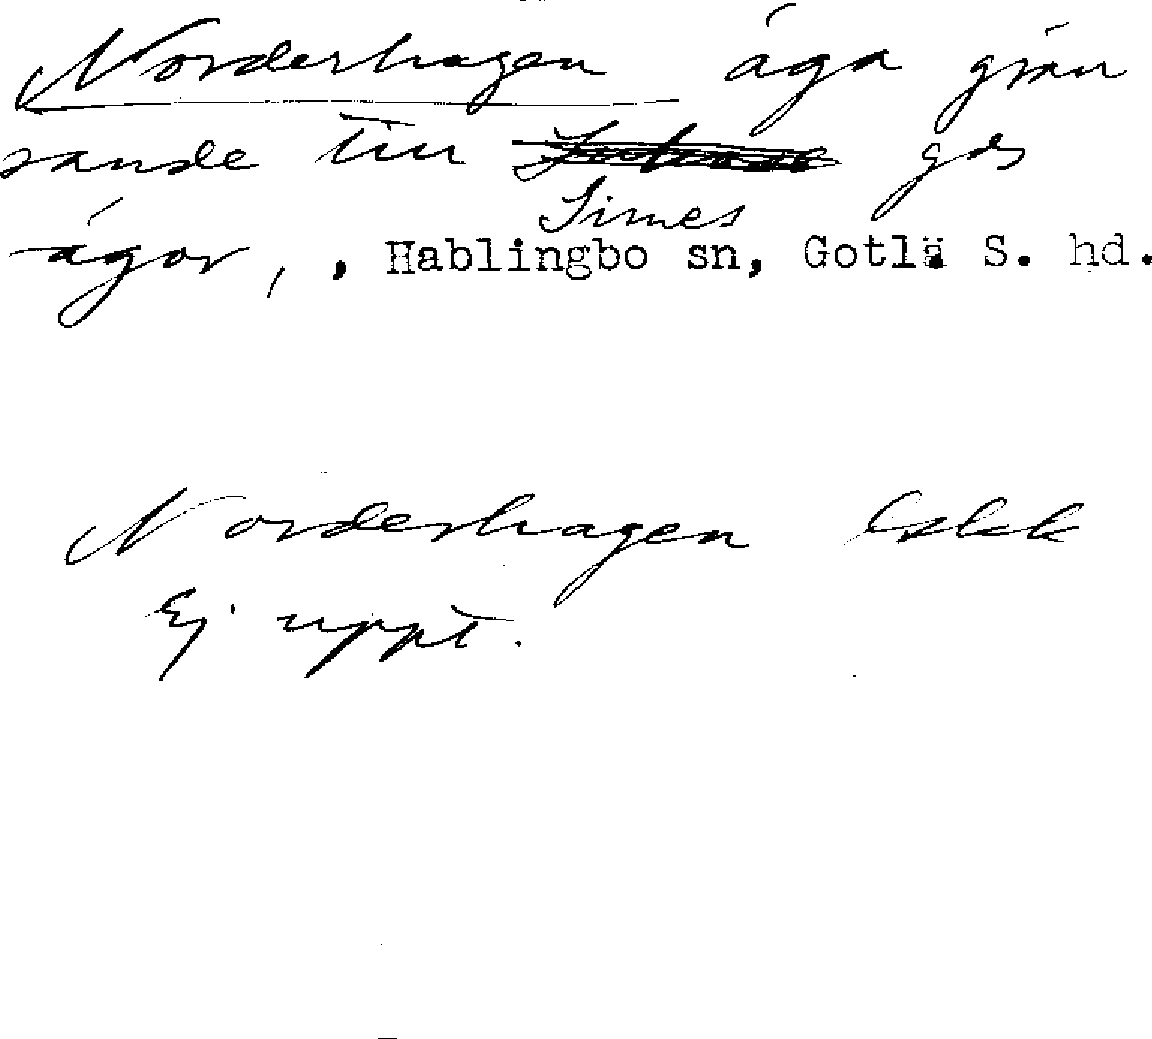 Norderhagen äga grän
sande till Simes gds
ägor, , Hablingbo sn, Gotlä S. hd.
Norderhagen Eskk
Ej uppt.